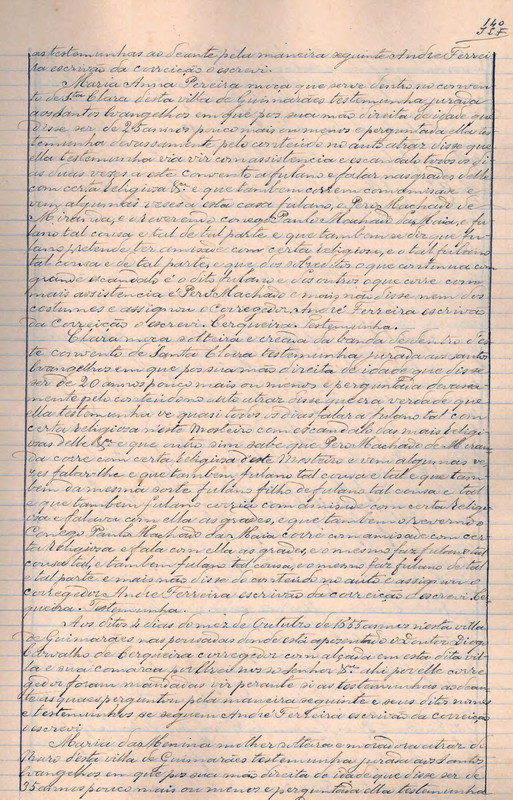 140
as testemunhas ao deante pela maneira seguinte André Ferrei
ra escrivão da correição o escrevi.
Maria Anna Pereira moça que serve dentro no conven
to de Sta Clara desta villa de Guimarães testemunha jurada
aos Santos Evangelhos em que pos sua mão direita de idade que
disse ser de 25 annos pouco mais ou menos e perguntada ella tes
temunha devassamente pelo contheudo no auto atraz disse que
ella testemunha via vir com assistencia e escandalo todos os di
as duas vezes a este convento a fulano e falar nas grades delle
com certa Religiosa &ra e que tambem com amisade e
vem algumas vezes a esta casa fulano, e Pero Machado de
Miranda, e o Reverendo conego Paulo Machado da Maia, e fu
lano tal cousa e tal de tal parte e que tambem que fu
lano pretende ter amisade com certa religiosa, e o tal fulano
tal cousa e de tal parte, e que dos sobreditos o que continua com
grande escandalo é o dito fulano e dos outros o que corre com
mais assistencia é Pero Machado e mais não disse nem dos
costumes e assignou o Corregedor André Ferreira escrivão
da Correição o escrevi. Cerqueira. Testemunha.
Clara moça solteira e creada da banda de dentro d'es
te convento de Santa Clara testemunha jurada aos Santos
Evangelhos em que pos sua mão direita de idade que disse
ser de 20 annos pouco mais ou menos e perguntada devassa
mente pelo contheudo no auto atraz disse que era verdade que
ella testemunha ve quasi todos os dias falar a fulano tal com
certa religiosa neste Mosteiro com escandalo das mais Religi
osas delle &ra e que outro sim sabe que Pero Machado de Miran
da corre com certa Religiosa deste Mosteiro e vem algumas ve
zes falar-lhe e que tambem fulano tal cousa e tal e que tam
bem da mesma sorte fulano filho de fulano tal cousa e tal
e que tambem fulano corria com amisade com certa Religio
sa e falava com ella as grades, e que tambem o Reverendo
Conego Paulo Machado da Maia corre com amisade com cer
ta Religiosa e fala com ella as grades, e o mesmo faz fulano tal
cousa tal, e tambem fulano tal cousa, e o mesmo faz fulano de tal
e tal parte e mais não disse do contheudo no auto e assignou o
corregedor André Ferreira escrivão da correição o escrevi. Cer
queira. Testemunha.
Aos ditos 4 dias do mez de Outubro de annos nesta villa
de Guimarães nas pousadas donde está aposentado o doutor Diogo
Carvalho de Cerqueira corregedor com alçada em esta dita vil
la e sua comarca por nosso Senhor &ra ahi por elle corre
gedor foram mandadas vir perante si as testemunhas ao dean
te as quaes perguntou pela maneira seguinte e seus ditos nomes
e testemunhos se seguem André Ferreira escrivão da correição
o escrevi.
Maria da mulher e moradora atraz do
Muro d'esta villa de Guimarães testemunha jurada aos Santos
Evangelhos em que pos sua mão direita de idade que disse ser de
35 annos pouco mais ou menos e perguntada ella testemunha